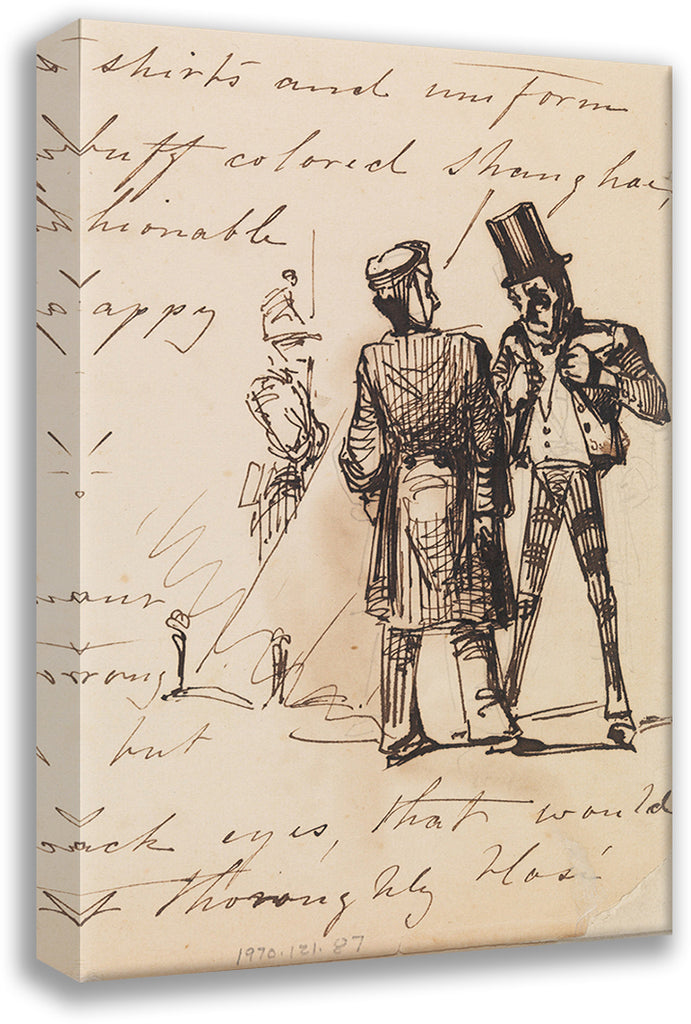 shirts and uniform
buff colored shanghai,
hionable
happy
your
strong
but
back eyes, that would
thoroughly blasé
1970.121.87